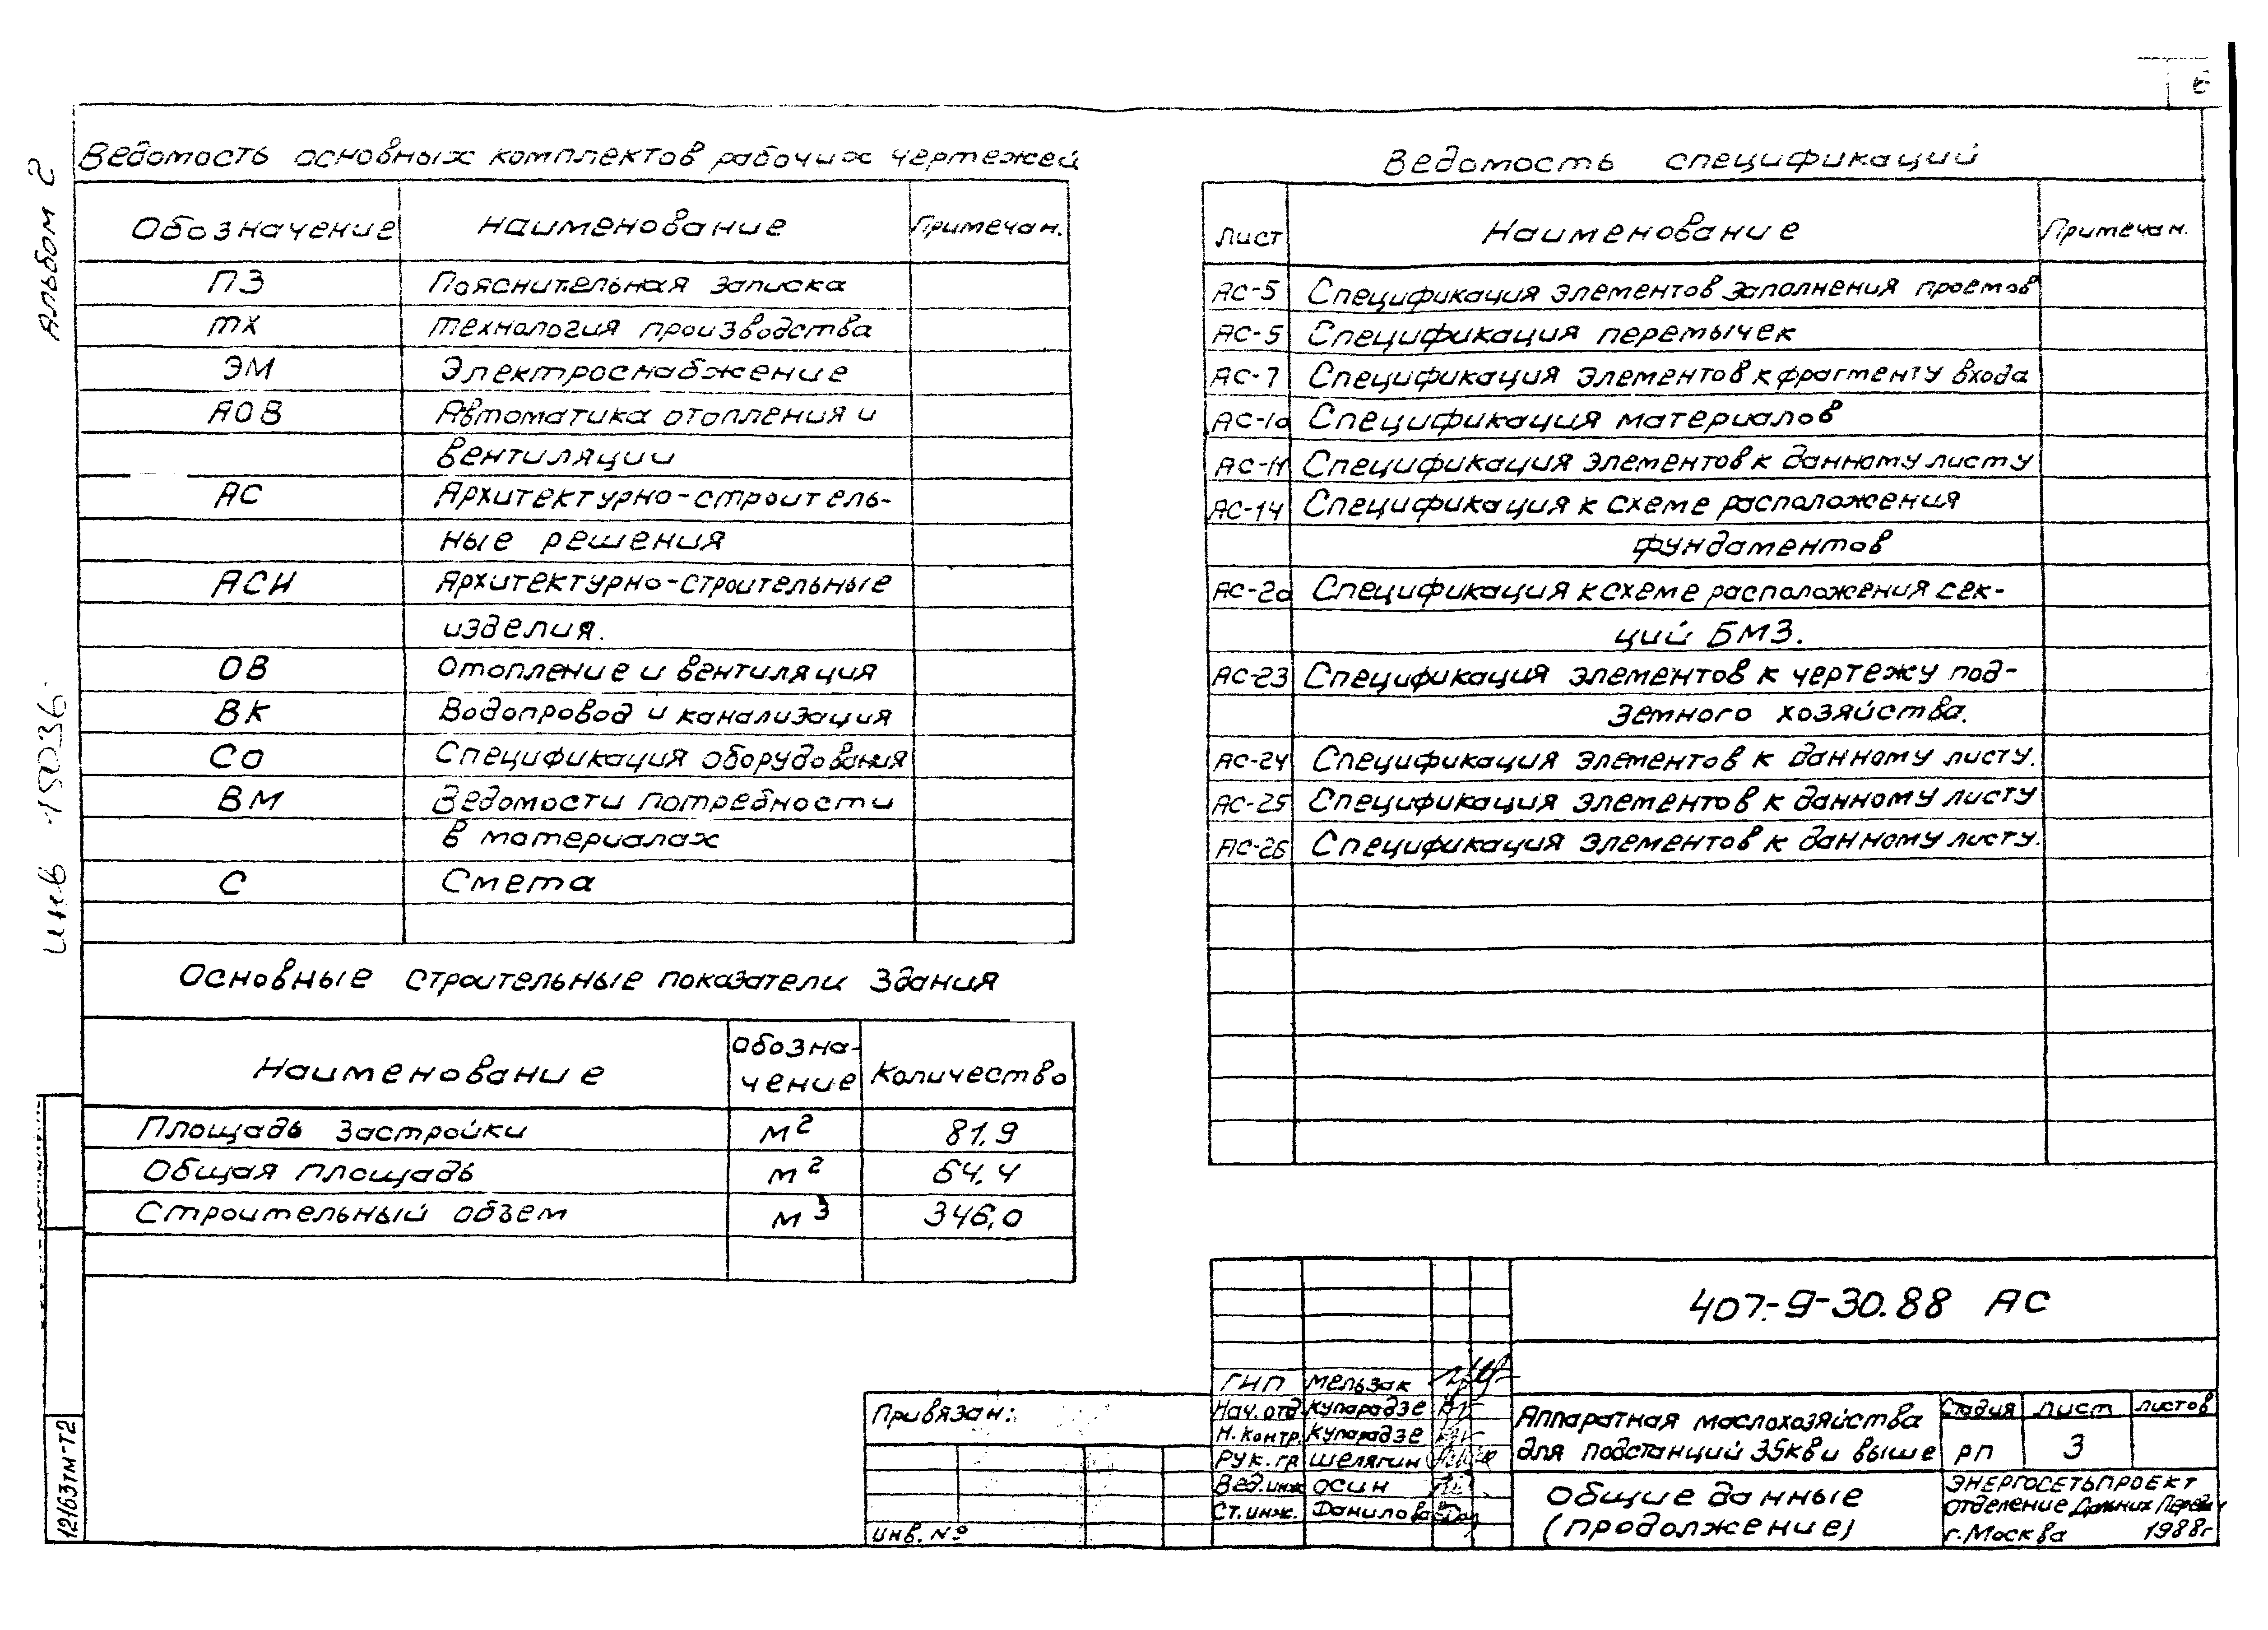 Альбом 2
Ведомость основных комплектов рабочих чертежей
Обозначение Наименование Примечан.
ПЗ Пояснительная записка
ТХ Технология производства
ЭМ Электроснабжение
АОВ Автоматика отопления и
вентиляции
АС Архитектурно-строитель-
ные решения
АСИ Архитектурно-строительные
изделия.
ОВ Отопление и вентиляция
ВК Водопровод и канализация
СО Спецификация оборудования
ВМ Ведомости потребности
в материалах
С Смета
Основные строительные показатели здания
Наименование Обозна- Количество
чение
Площадь застройки м2 81,9
Общая площадь м2 64,4
Строительный объем м3 346,0
Ведомость спецификаций
Лист Наименование Примечан.
АС-5 Спецификация элементов заполнения проемов
АС-5 Спецификация перемычек
АС-7 Спецификация элементов к фрагменту входа
АС-10 Спецификация материалов
АС-11 Спецификация элементов к данному листу
АС-14 Спецификация к схеме расположения
фундаментов
АС-20 Спецификация к схеме расположения сек-
ций БМЗ.
АС-23 Спецификация элементов к чертежу под-
земного хозяйства.
АС-24 Спецификация элементов к данному листу.
АС-25 Спецификация элементов к данному листу
АС-26 Спецификация элементов к данному листу.
инв 15036
12163тм-Т2
Привязан:
инв. №
407-9-30.88 АС
ГИП Мельзак
Нач. отд. Купарадзе
Н. контр. Купарадзе
Рук. гр Шелягин
Вед. инж Осин
Ст. инж. Данилова
Аппаратная маслохозяйства
для подстанций 35кв и выше
Стадия Лист Листов
РП 3
Общие данные
(продолжение)
ЭНЕРГОСЕТЬПРОЕКТ
Отделение Дальних
г. Москва 1988г